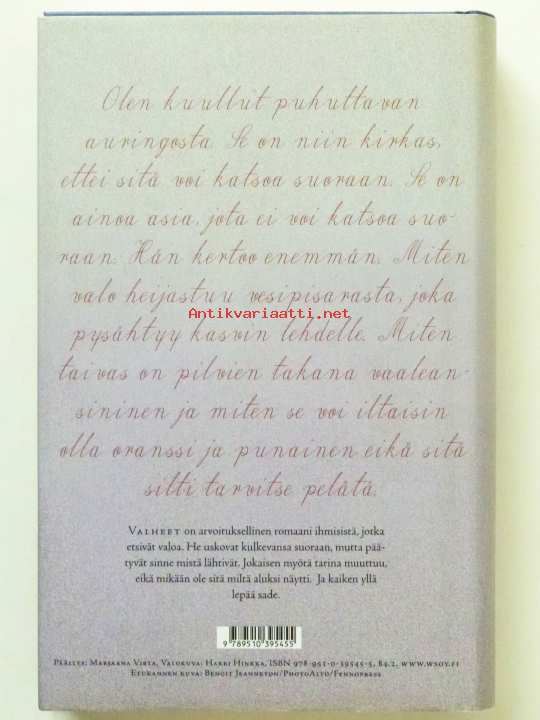 Olen kuullut puhuttavan
auringosta. Se on niin kirkas,
ettei sitä voi katsoa suoraan. Se on
ainoa asia, jota ei voi katsoa suo-
raan. Hän kertoo enemmän. Miten
valo heijastuu vesipisarasta, joka
Antikvariaatti.net
pysähtyy kasvin lehdelle. Miten
taivas on pilvien takana vaalean-
sininen ja miten se voi iltaisin
olla oranssi ja punainen eikä sitä
silti tarvitse pelätä.
Valheet on arvoituksellinen romaani ihmisistä, jotka
etsivät valoa. He uskovat kulkevansa suoraan, mutta pää-
tyvät sinne mistä lähtivät. Jokaisen myötä tarina muuttuu,
eikä mikään ole sitä miltä aluksi näytti. Ja kaiken yllä
lepää sade.
9789510395455
Päällys: Marjaana Virta, Valokuva: Harri Hinkka, ISBN 978-951-0-39545-5, 84.2, www.wsoy.fi
Etukannen kuva: Benoit Jeanneton/PhotoAlto/Fennopress